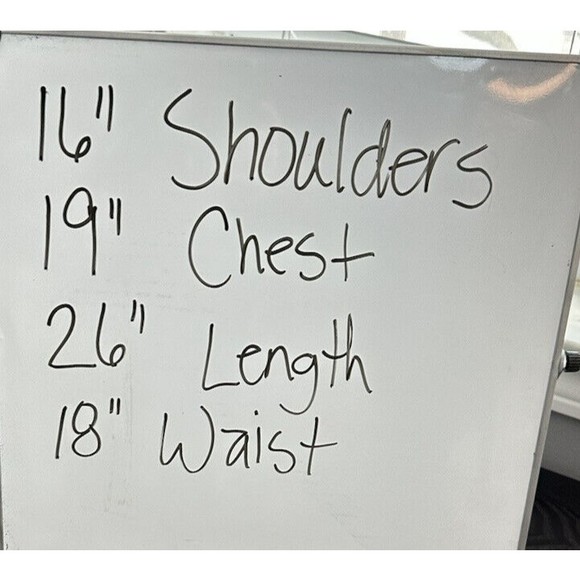 16" Shoulders
19" Chest
26" Length
18" Waist